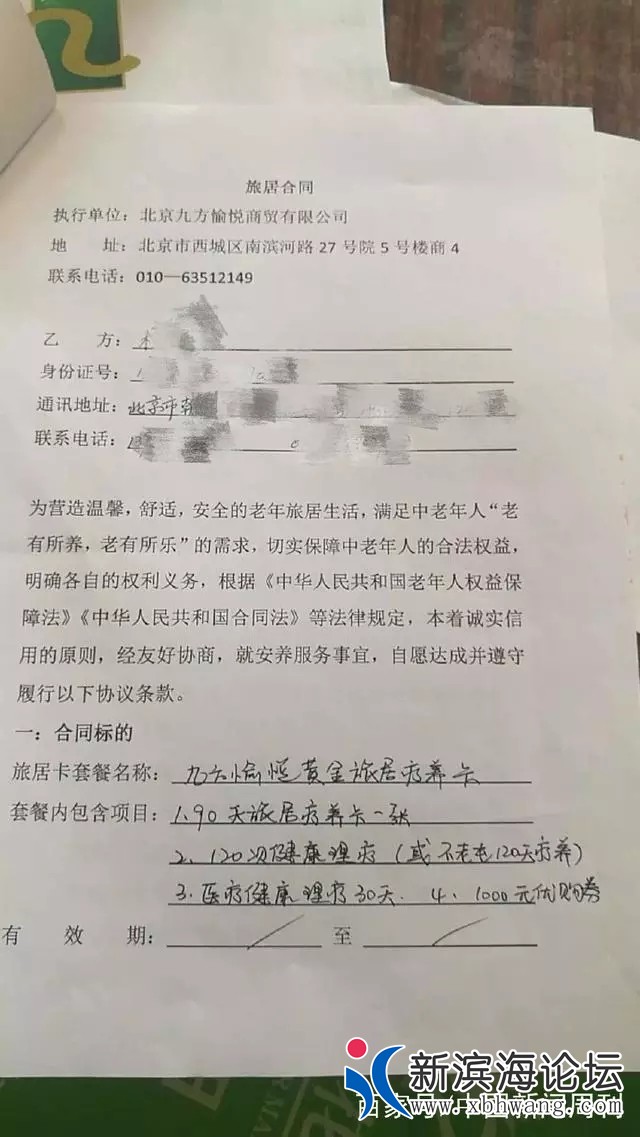 旅居合同
执行单位：北京九方愉悦商贸有限公司
地 址：北京市西城区南滨河路 27 号院 5 号楼商 4
联系电话：010—63512149
乙 方：
身份证号：
通讯地址：北京市
联系电话：
为营造温馨，舒适，安全的老年旅居生活，满足中老年人“老
有所养，老有所乐”的需求，切实保障中老年人的合法权益，
明确各自的权利义务，根据《中华人民共和国老年人权益保
障法》《中华人民共和国合同法》等法律规定，本着诚实信
用的原则，经友好协商，就安养服务事宜，自愿达成并遵守
履行以下协议条款。
一：合同标的
旅居卡套餐名称：九方愉悦黄金旅居疗养卡
套餐内包含项目：1.90天旅居疗养卡一张
2、120次健康理疗（或不老屯120天疗养）
3.医疗健康理疗30天. 4、1000元优购券
有 效 期： 至
新滨海论坛
www.xbhwang.com
百家号/中国新闻周刊